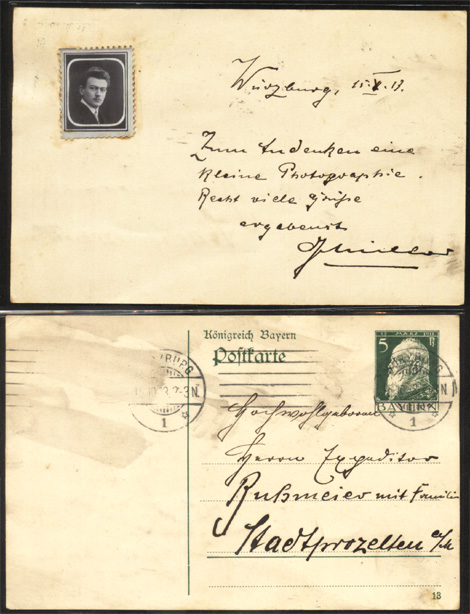 Würzburg, 15.X.13.
Zum Andenken eine
kleine Photographie.
Recht viele Grüße
ergebenst
Königreich Bayern
Postkarte
5 Pf
BAYERN
1
1
Hochwohlgeboren
Herrn Expeditor
Rußmeier mit Familie
Stadtprozelten a/M
13